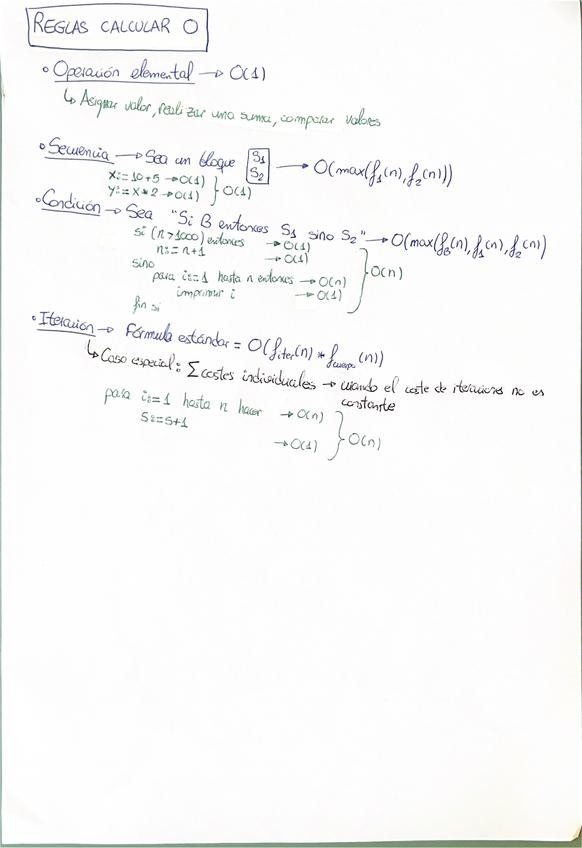 REGLAS CALCULAR O
• Operación elemental → O(1)
↳ Asignar valor, realizar una suma, comparar valores
• Secuencia → Sea un bloque S1 S2 → O(max(f1(n), f2(n)))
x:= 10+5 → O(1)
y:= x*2 → O(1) } O(1)
• Condición → Sea "Si B entonces S1 sino S2" → O(max(fB(n), f1(n), f2(n)))
si (n>1000) entonces → O(1)
n:= n+1 → O(1)
sino } O(n)
para i:=1 hasta n entonces → O(n)
imprimir i → O(1)
fin si
• Iteración → Fórmula estándar = O(fiter(n) * fcuerpo(n))
↳ Caso especial: ∑ costes individuales → cuando el coste de iteraciones no es
constante
para i:=1 hasta n hacer → O(n)
s:=s+1 → O(1) } O(n)